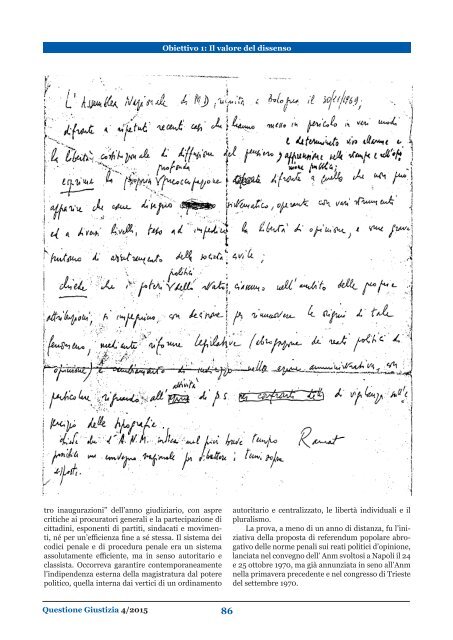 Obiettivo 1: Il valore del dissenso
L'Assemblea Nazionale di MD, riunita a Bologna il 30/11/1969;
difronte a ripetuti recenti casi che hanno messo in pericolo in vari modi
e determinato vivo allarme e
la libertà costituzionale di diffusione del pensiero, apprensione nella stampa e nell'opi
nione pubblica;
profonda
esprime la propria preoccupazione difronte a quello che non può
apparire che come disegno sistematico, operante con vari strumenti
ed a diversi livelli, teso ad impedire la libertà di opinione, e come grave
tentativo di arretramento della società civile;
politici
chiede che i poteri dello Stato, ciascuno nell'ambito delle proprie
attribuzioni, si impegnino, con decisione per rimuovere le origini di tale
fenomeno, mediante riforme legislative (abrogazione dei reati politici di
opinione) e cambiamento di indirizzo nella azione amministrativa, con
attività
particolare riguardo all' di P.S. nei confronti della di vigilanza sull'e
sercizio delle tipografie.
chiede che l'A.N.M. indica nel più breve tempo
possibile un convegno nazionale per dibattere i temi sopra
esposti.
Ramat
tro inaugurazioni" dell'anno giudiziario, con aspre
critiche ai procuratori generali e la partecipazione di
cittadini, esponenti di partiti, sindacati e movimen-
ti, né per un'efficienza fine a sé stessa. Il sistema dei
codici penale e di procedura penale era un sistema
assolutamente efficiente, ma in senso autoritario e
classista. Occorreva garantire contemporaneamente
l'indipendenza esterna della magistratura dal potere
politico, quella interna dai vertici di un ordinamento
autoritario e centralizzato, le libertà individuali e il
pluralismo.
La prova, a meno di un anno di distanza, fu l'ini-
ziativa della proposta di referendum popolare abro-
gativo delle norme penali sui reati politici d'opinione,
lanciata nel convegno dell' Anm svoltosi a Napoli il 24
e 25 ottobre 1970, ma già annunziata in seno all'Anm
nella primavera precedente e nel congresso di Trieste
del settembre 1970.
Questione Giustizia 4/2015
86